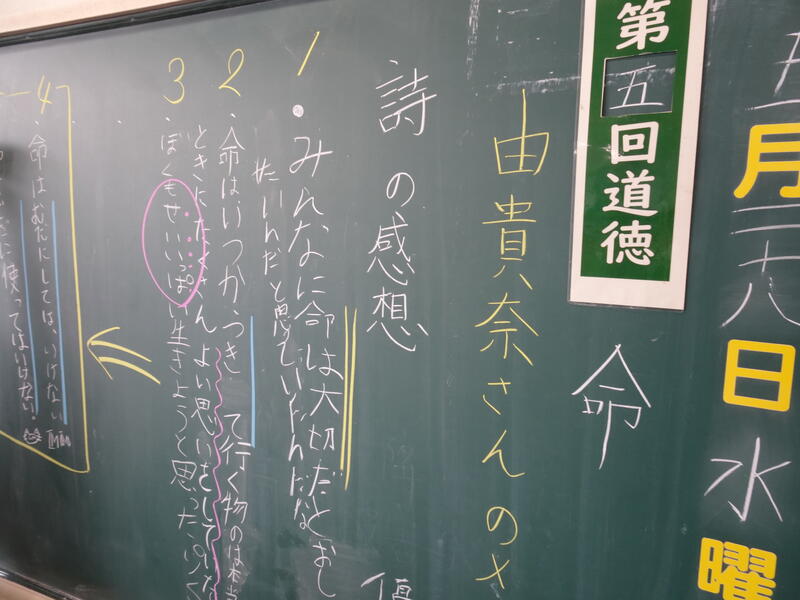 五月二十八日水曜
第五回道徳
命
由貴奈さんのさ
詩の感想
1・みんなに命は大切だとおし
たいんだと思っていたんだな
2・命はいつかつきて行く物のは本当
ときにたくさんよい思いをして
3・ぼくもせいいっぱい生きようと思った
4・命はむだにしてはいけない
使ってはいけない。